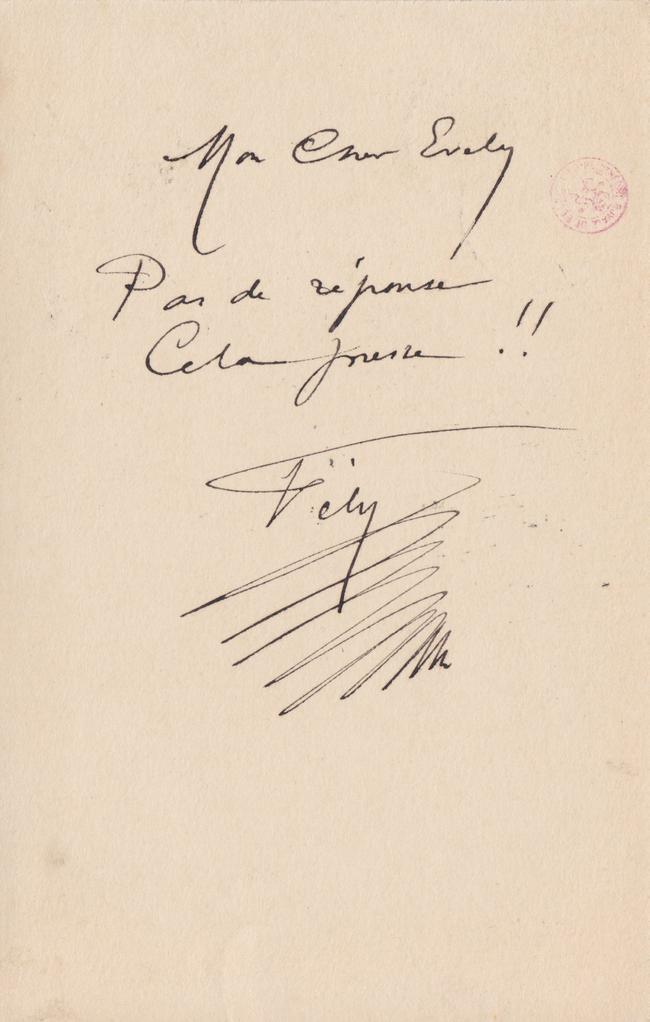 Mon Cher Evely
Pas de réponse
Cela presse !!
Fély